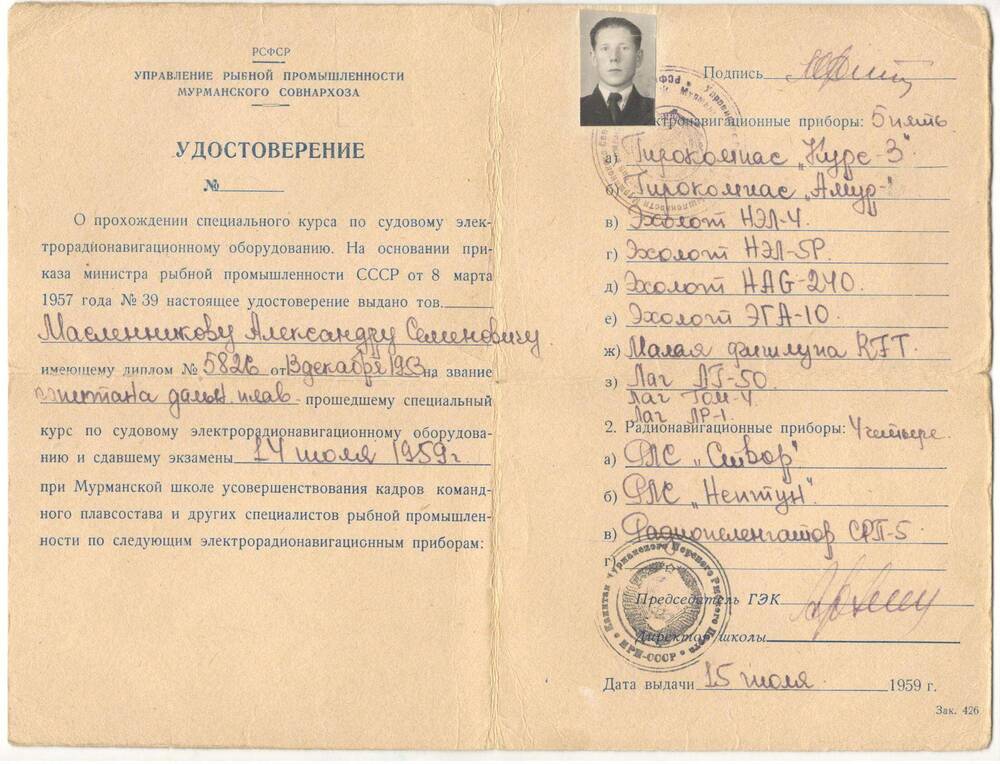 РСФСР
УПРАВЛЕНИЕ РЫБНОЙ ПРОМЫШЛЕННОСТИ
МУРМАНСКОГО СОВНАРХОЗА
УДОСТОВЕРЕНИЕ
№
О прохождении специального курса по судовому элек-
трорадионавигационному оборудованию. На основании при-
каза министра рыбной промышленности СССР от 8 марта
1957 года № 39 настоящее удостоверение выдано тов.
Масленникову Александру Семеновичу
имеющему диплом № 5826 от 13 декабря 1953 на звание
капитана дальн. плав. прошедшему специальный
курс по судовому электрорадионавигационному оборудова-
нию и сдавшему экзамены 14 июля 1959 г.
при Мурманской школе усовершенствования кадров команд-
ного плавсостава и других специалистов рыбной промышлен-
ности по следующим электрорадионавигационным приборам:
Подпись
ктронавигационные приборы: 5 пять.
а) Гирокомпас „Курс-3"
б) Гирокомпас „Амур-"
в) Эхолот НЭЛ-4
г) Эхолот НЭЛ-5Р.
д) Эхолот HAG-240.
е) Эхолот ЭГА-10.
ж) Малая фишлупа RFT.
з) Лаг ЛГ-50.
Лаг ГОМ-4
Лаг ЛР-1.
2. Радионавигационные приборы: 4 четыре.
а) РЛС „Створ"
б) РЛС „Нептун".
в) Радиопеленгатор СРП-5
г)
Председатель ГЭК
Директор школы
Капитан Мурманского Морского Рыбного Порта
МРП-СССР
Дата выдачи 15 июля 1959 г.
Зак. 426